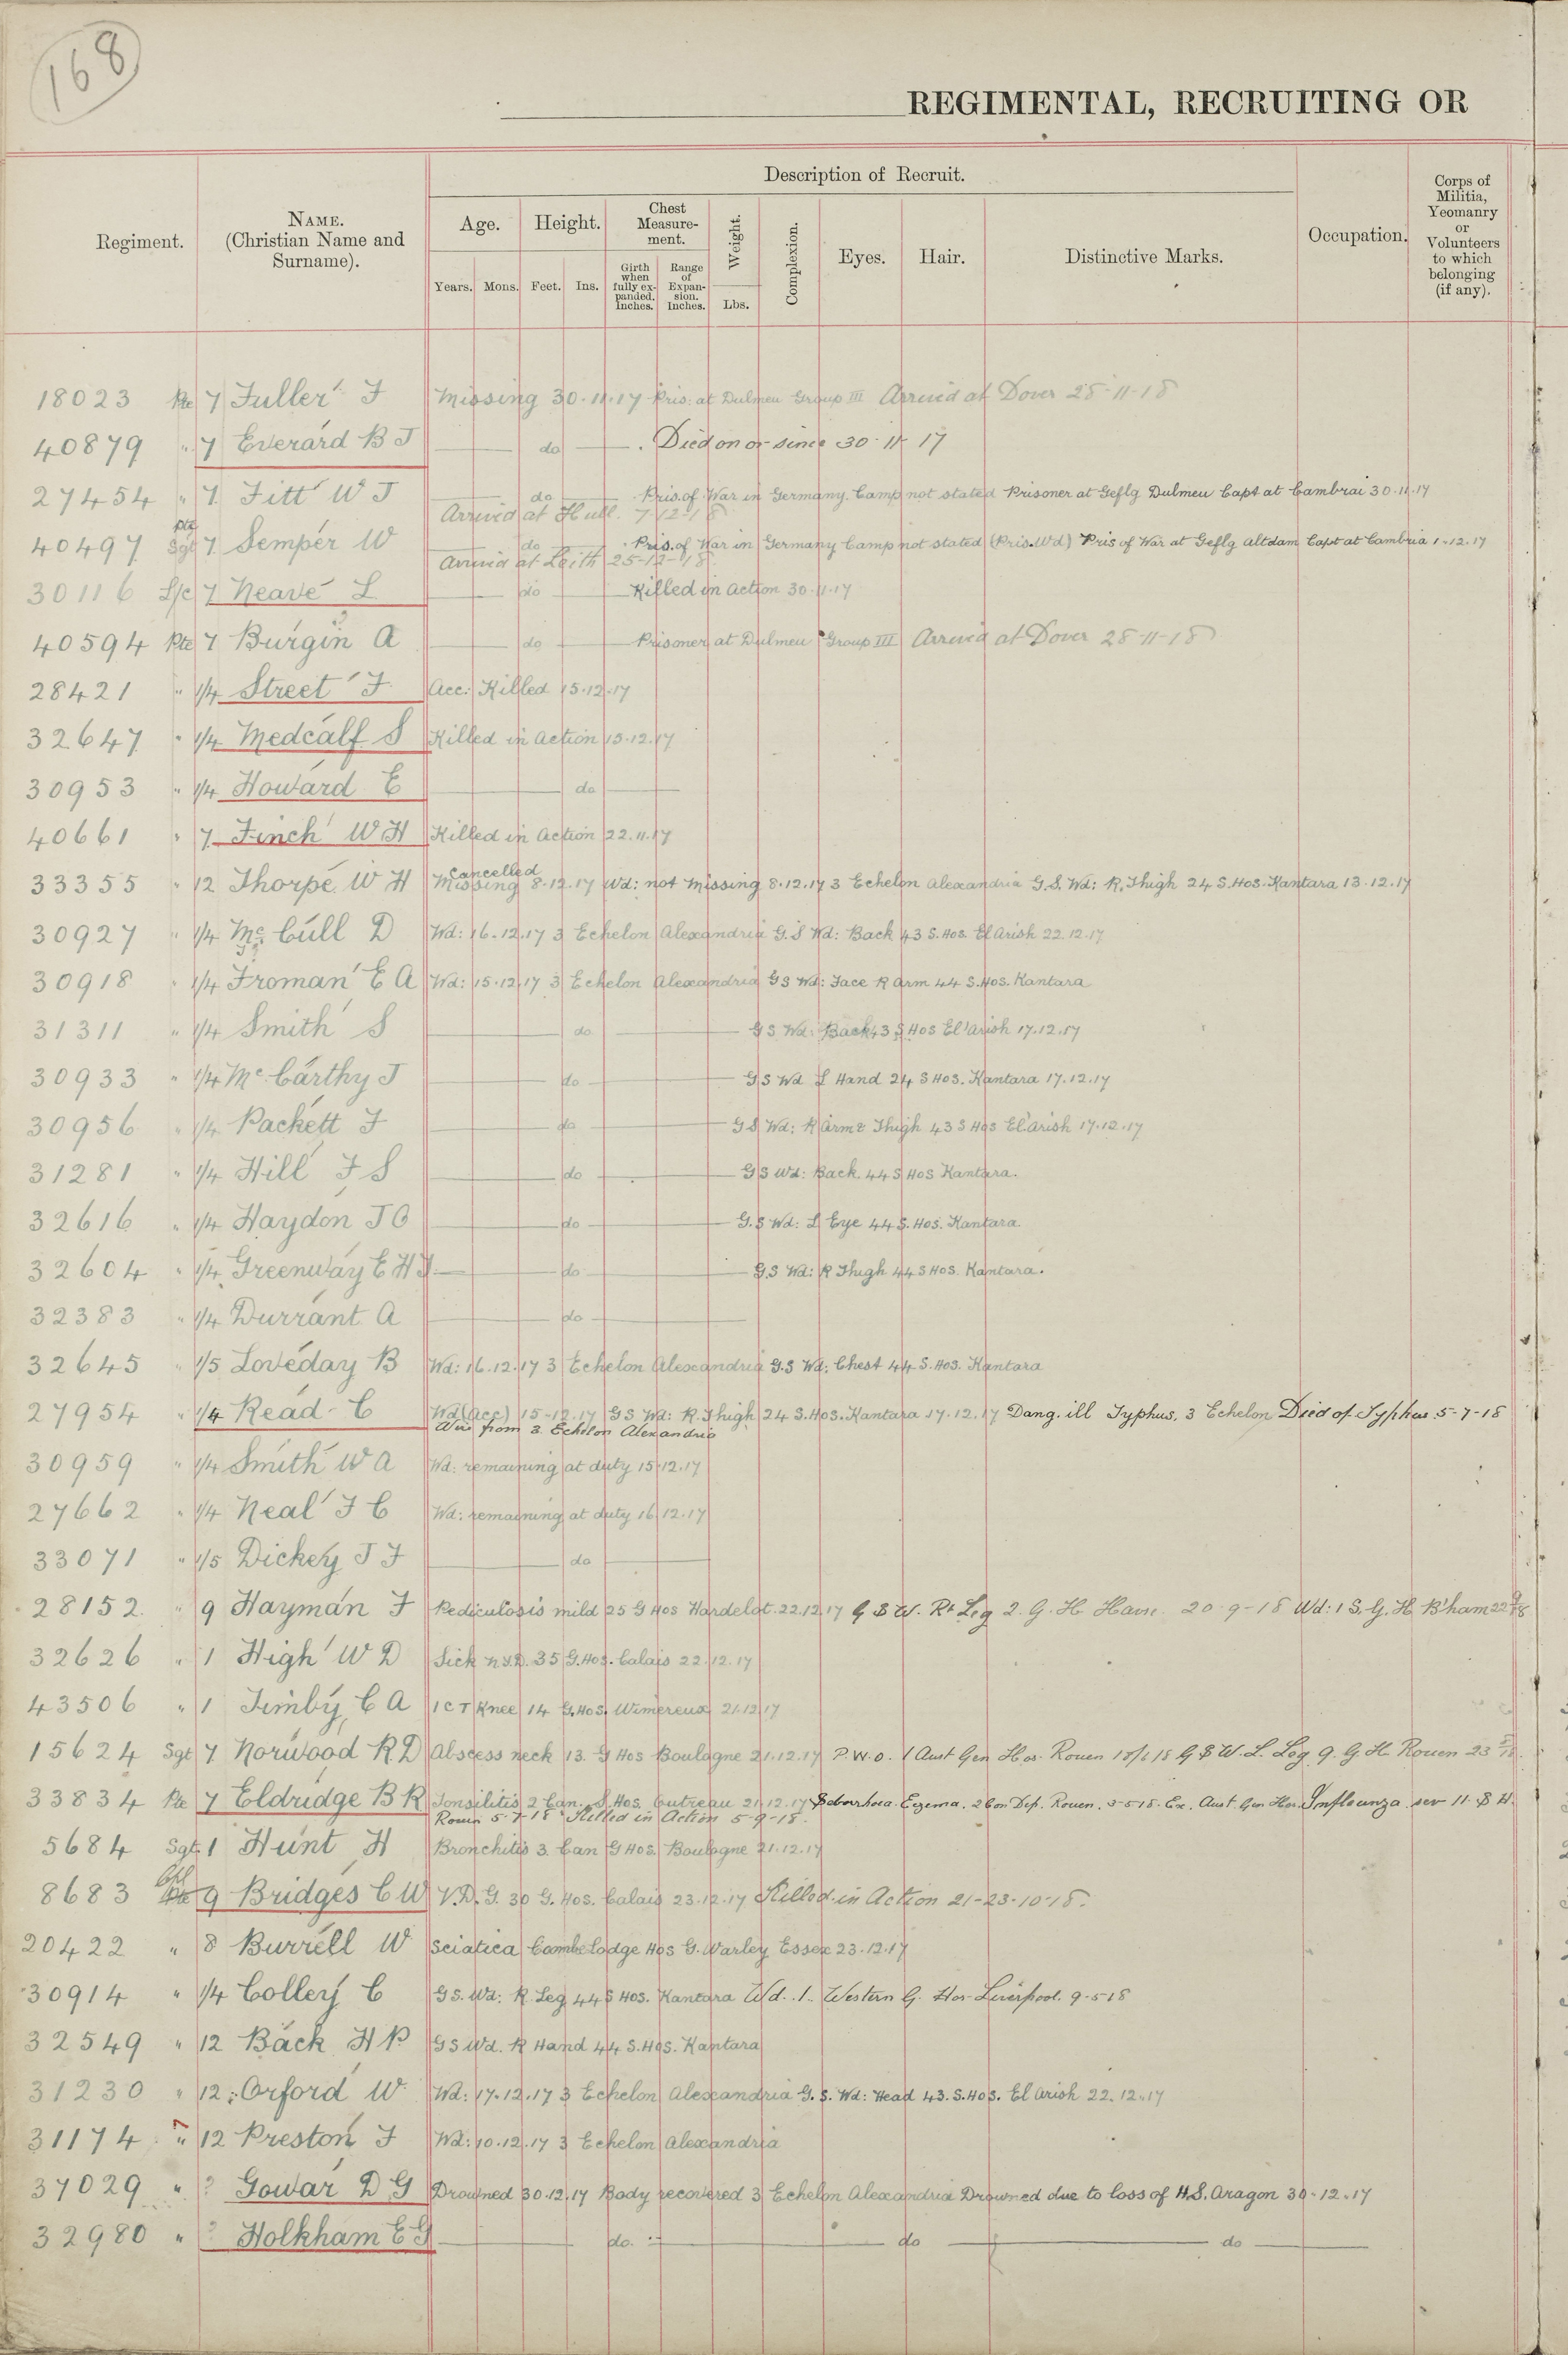 168
REGIMENTAL, RECRUITING OR
Description of Recruit.
Regiment.
NAME.
(Christian Name and
Surname).
Age.
Height.
Chest
Measure-
ment.
Weight.
Complexion.
Eyes.
Hair.
Distinctive Marks.
Occupation.
Corps of
Militia,
Yeomanry
or
Volunteers
to which
belonging
(if any).
Years.
Mons.
Feet.
Ins.
Girth
when
fully ex-
panded.
Inches.
Range
of
Expan-
sion.
Inches.
Lbs.
18023 Pte 7 Fuller F Missing 30.11.17 Pris: at Dulmen Group III Arrived at Dover 28-11-18
40879 " 7 Everard B J do . Died on or since 30-11-17
27454 " 7 Fitt W J do Pris. of War in Germany. Camp not stated Prisoner at Geflg Dulmen Capt at Cambrai 30.11.17
Arrived at Hull. 7-12-18
Pte
40497 Sgt 7 Semper W do Pris. of War in Germany Camp not stated (Pris. Wd) Pris of War at Geflg Altdam Capt at Cambria 1.12.17
Arrived at Leith 25-12-18
30116 L/c 7 Neave L do Killed in Action 30.11.17
40594 Pte 7 Burgin A do Prisoner at Dulmen Group III Arrived at Dover 28-11-18
28421 " 1/4 Street F Acc: Killed 15.12.17
32647 " 1/4 Medcalf S Killed in Action 15.12.17
30953 " 1/4 Howard E do
40661 " 7 Finch W H Killed in Action 22.11.17
Cancelled
33355 " 12 Thorpe W H Missing 8.12.17 Wd: not Missing 8.12.17 3 Echelon Alexandria G.S. Wd: R. Thigh 24 S.Hos. Kantara 13.12.17
30927 " 1/4 McCull D Wd: 16.12.17 3 Echelon Alexandria G.S Wd: Back 43 S.Hos. El Arish 22.12.17
30918 " 1/4 Froman E A Wd: 15.12.17 3 Echelon Alexandria GS Wd: Face R Arm 44 S.Hos. Kantara
31311 " 1/4 Smith S do GS Wd: Back 43 S Hos El Arish 17.12.17
30933 " 1/4 McCarthy J do GS Wd L Hand 24 S Hos. Kantara 17.12.17
30956 " 1/4 Packett F do GS Wd: R Arm & Thigh 43 S Hos El Arish 17.12.17
31281 " 1/4 Hill F S do GS Wd: Back 44 S Hos Kantara.
32616 " 1/4 Haydon J O do G.S Wd: L Eye 44 S. Hos. Kantara
32604 " 1/4 Greenway E H J do GS Wd: R Thigh 44 S Hos. Kantara.
32383 " 1/4 Durrant A do
32645 " 1/5 Loveday B Wd: 16.12.17 3 Echelon Alexandria G.S Wd: Chest 44 S.Hos. Kantara
27954 " 1/4 Read C Wd (Acc) 15-12.17 GS Wd: R. Thigh 24 S.Hos. Kantara 17.12.17 Dang. ill Typhus, 3 Echelon Died of Typhus 5-7-18
Wire from 3. Echelon Alexandria
30959 " 1/4 Smith W A Wd: remaining at duty 15.12.17
27662 " 1/4 Neal F C Wd: remaining at duty 16.12.17
33071 " 1/5 Dickey J F do
28152 " 9 Hayman F Pediculosis mild 25 G Hos Hardelot. 22.12.17 G S W. Rt Leg 2. G. H. Havre. 20-9-18 Wd: 1 S. G. H. B'ham 22 9/18
32626 " 1 High W D Sick N.Y.D. 35 G.Hos. Calais 22.12.17
43506 " 1 Timby C A I C T Knee 14 G.Hos. Wimereux 21.12.17
15624 Sgt 7 Norwood R.D Abscess neck 13. G Hos Boulogne 21.12.17 P.U.O. 1 Aust Gen Hos. Rouen 18/1/18 G S W. L. Leg 9. G. H. Rouen 23
33834 Pte 7 Eldridge B R Tonsilitis 2 Can. S. Hos. Outreau 21.12.17 Seborrhoea Eczema. 2 Con Dep. Rouen. 3-5-18. Ex. Aust. Gen Hos. Influenza sev 11. S H.
Rouen 5-7-18 Killed in Action 5-9-18.
5684 Sgt 1 Hunt H Bronchitis 3. Can G Hos. Boulogne 21.12.17
Cpl
8683 Pte 9 Bridges C W V.D.G. 30 G. Hos. Calais 23.12.17 Killed in Action 21-23-10-18.
20422 " 8 Burrell W Sciatica Coombe Lodge Hos G. Warley Essex 23.12.17
30914 " 1/4 Colley C GS. Wd: R Leg 44 S Hos. Kantara Wd. 1. Western G. Hos Liverpool. 9-5-18
32549 " 12 Back H P GS Wd. R Hand 44 S.Hos. Kantara
31230 " 12 Orford W. Wd: 17.12.17 3 Echelon Alexandria G.S. Wd: Head 43. S.Hos. El Arish 22.12.17
31174 " 12 Preston F Wd: 10.12.17 3 Echelon Alexandria
37029 " ? Gowar D G Drowned 30.12.17 Body recovered 3 Echelon Alexandria Drowned due to loss of H.S. Aragon 30-12.17
32980 " ? Holkham E G do. do do